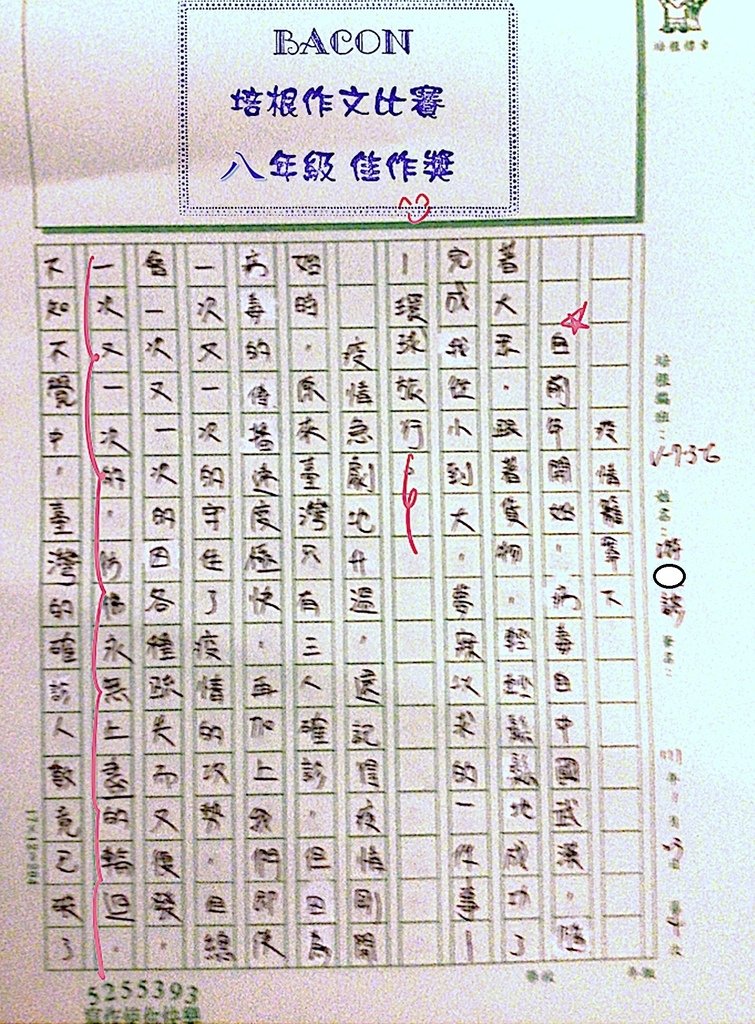 BACON
培根作文比賽
八年級 佳作獎
疫情籠罩下
自前年開始,病毒自中國武漢,隨
著大眾,跟著貨物,輕輕鬆鬆地成功了
完成我從小到大,夢寐以求的一件事—
—環球旅行。
疫情急劇地升溫,還記得疫情剛開
始時,原來臺灣只有三人確診,但因為
病毒的傳播速度極快,再加上我們即使
一次又一次的守住了疫情的攻勢,但總
會一次又一次的因各種疏失而又復發,
一次又一次的,彷彿永無止盡的輪迴。
不知不覺中,臺灣的確診人數竟已破了
姓名:游
5255393